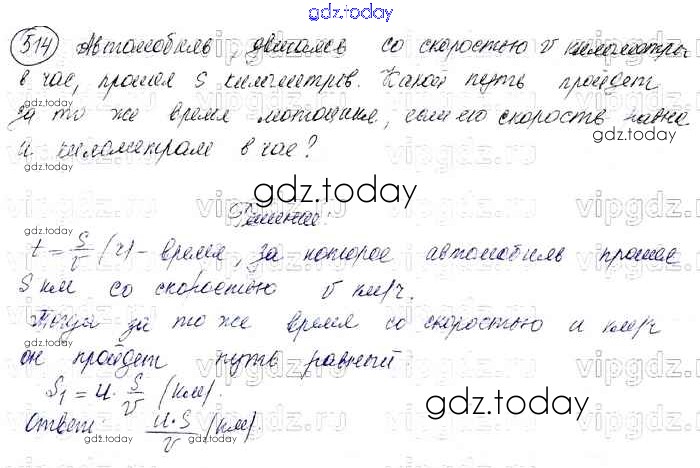 gdz.today
514 Автомобиль, двигаясь со скоростью v километров
в час, прошел S километров. Какой путь пройдет
за то же время мотоцикл, если его скорость равна
и километрам в час?
gdz.today
Решение:
t = S/v (ч) - время, за которое автомобиль прошел
S км со скоростью v км/ч.
Тогда за то же время со скоростью и км/ч
он пройдет путь равный
S₁ = и · S/v (км).
Ответ: и·S/v (км).
gdz.today